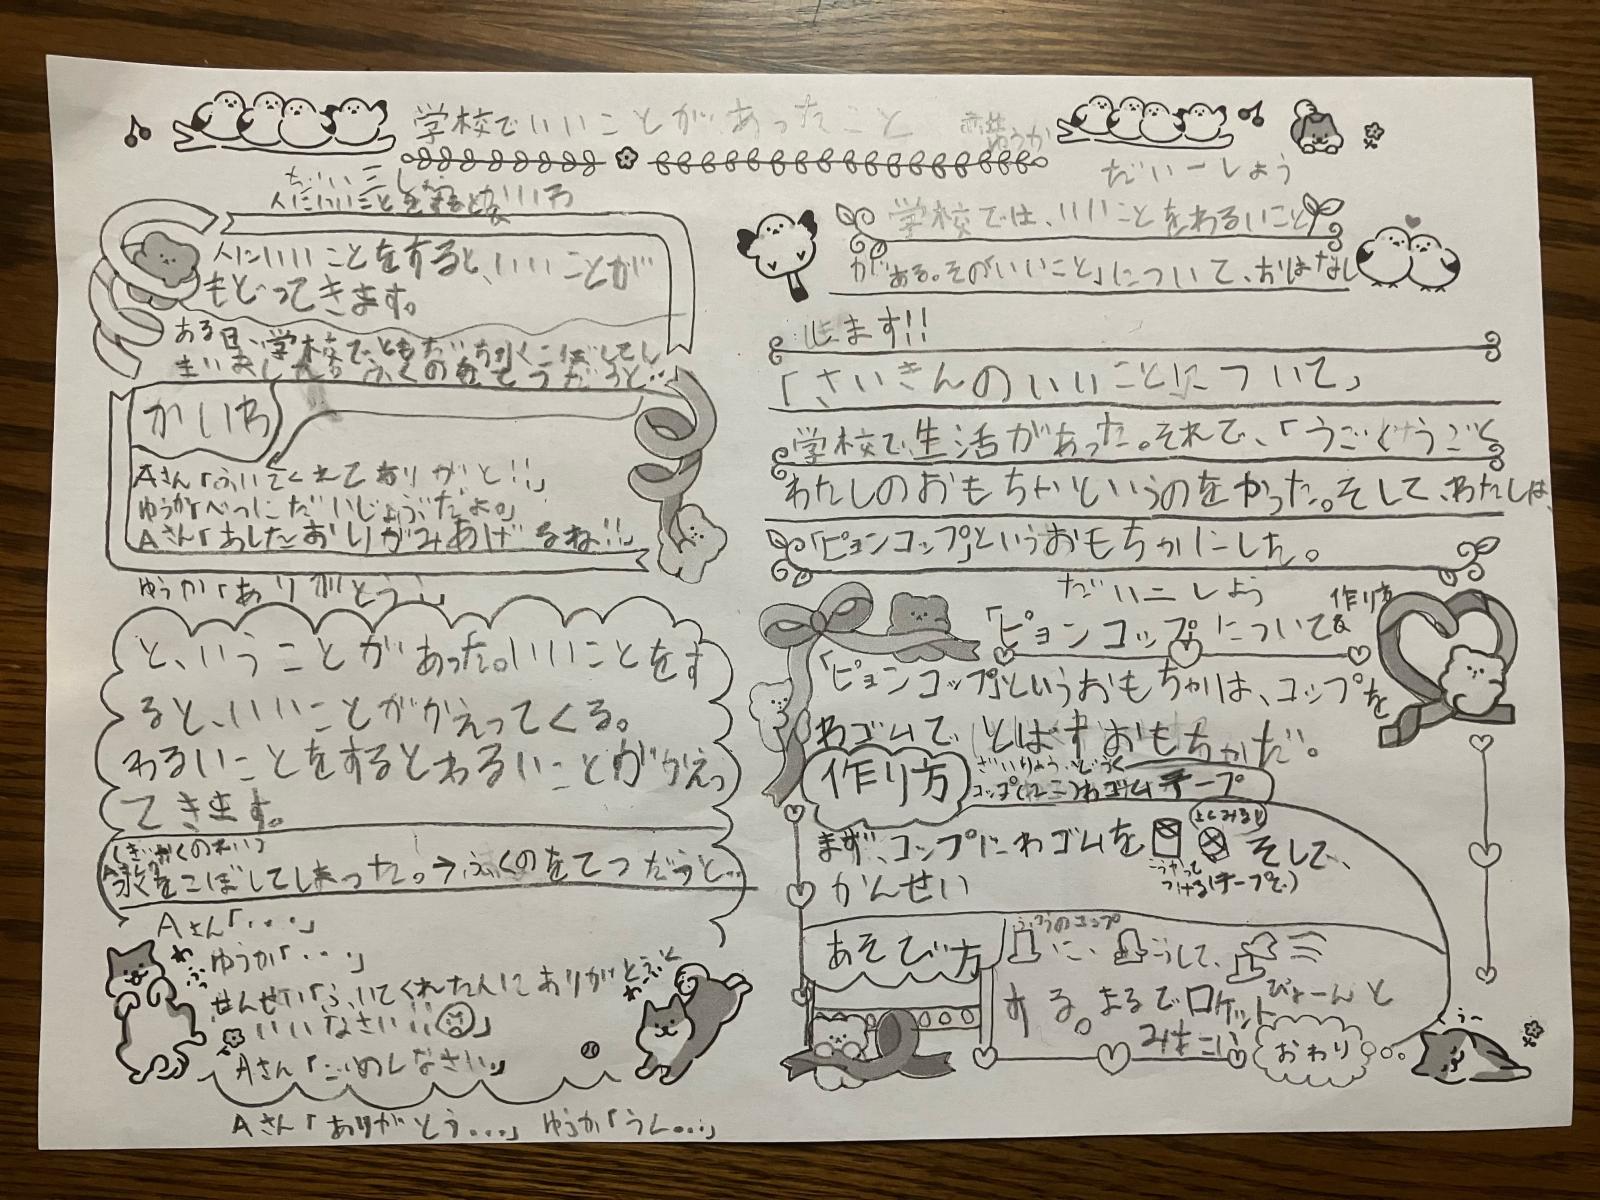 学校でいいことがあったこと
ゆうか
だいーしょう
学校では、いいことをわるいこと
がある。その「いいこと」について、おはなし
します!!
「さいきんのいいことについて」
学校で、生活があった。それで、「うごくうごく
わたしのおもちゃ」というのをやった。そして、わたしは、
「ピョンコップ」というおもちゃにした。
だいニしょう
「ピョンコップ」について&作り方
「ピョンコップ」というおもちゃは、コップを
わゴムで、とばすおもちゃだ。
作り方
ざいりょう・どうぐ
コップ わゴム テープ
まず、コップにわゴムを
よこみると
こうやって
つける(テープで)
そして、
かんせい
あそび方
うごうのコップ
に、
こうして、
する。まるでロケット
みたい
びょーんと
おわり
だい三し
人にいいことをするといいことが
もどってきます。
ある日、学校で、ともだちがこぼしてし
まいました。ふくのをてつだうと…
かいわ
Aさん「ふいてくれてありがと!!」
ゆうか「べつにだいじょうぶだよ。」
Aさん「あしたおりがみあげるね!!」
ゆうか「ありがとう!」
と、いうことがあった。いいことをす
ると、いいことがかえってくる。
わるいことをするとわるいことがかえっ
てきます。
しぎゃくのれい
をこぼしてしまった。→ふくのをてつだうと…
Aさん「・・・・」
ゆうか「・・・」
せんせい「ふいてくれた人にありがとうと
いいなさい!!」
Aさん「ごめんなさい。」
Aさん「ありがとう…」 ゆうか「うん…」